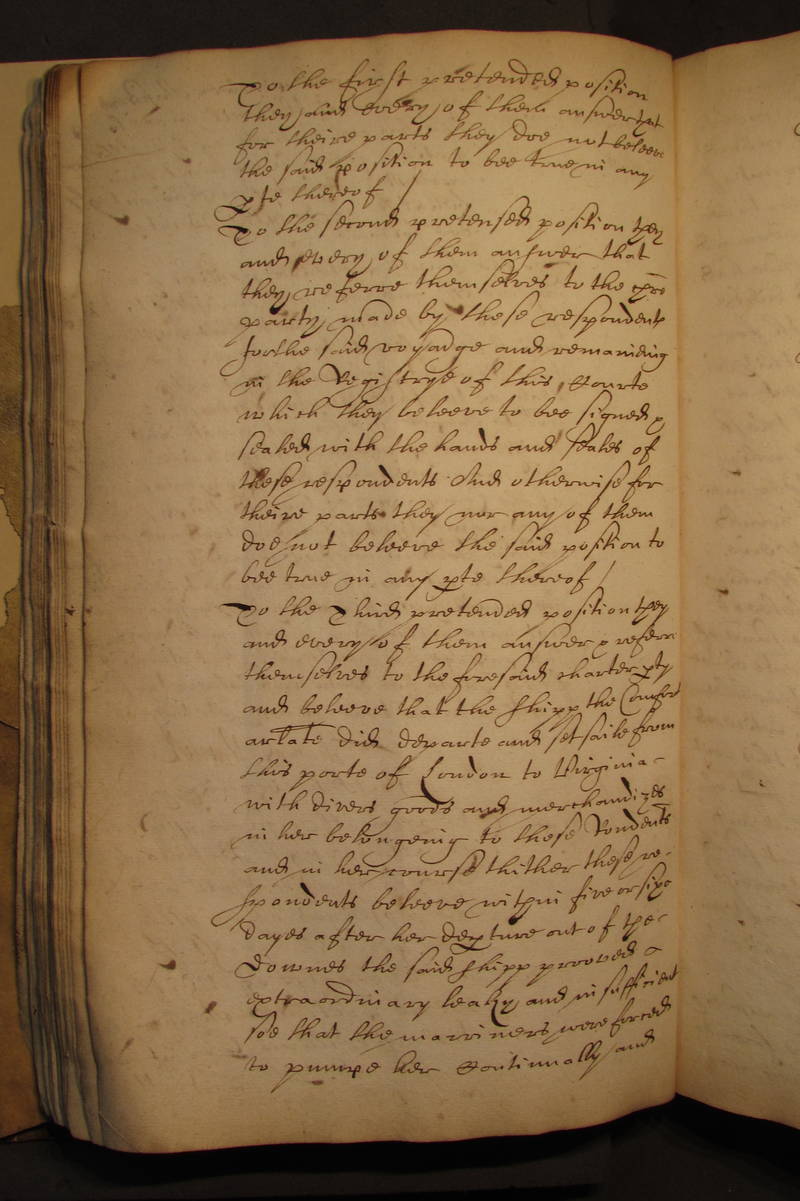 To the first pretended position
they and every of them answer yt
for theire parts they doe not beleeve
the said position to bee true in any
pte thereof /
To the second pretensed position they
and every of them answer that
they referre themselves to the chre
party made by these respondents
for the said voyadge and remanieing
in the Registrye of this Courte
which they beleeve to bee signed &
sealed with the hands and seales of
these respondents And otherwise for
theire parts they nor any of them
doe not beleeve the said position to
bee true in any pte thereof /
To the Third pretended position they
and every of them answer & referre
themselves to the foresaid charter pty
and beleeve that the shipp the Comfort
arlate did departe and set saile from
this porte of London to Virginia
with divers goods and merchandizes
in her belongeing to these Rondents
and in her course thither these re-
spondents beleeve within five or sixe
dayes after her depture out of the
Downes the said shipp prooved
extraordinary leaky and insufficient
soe that the marriners were forced
to pumpe her Continually and